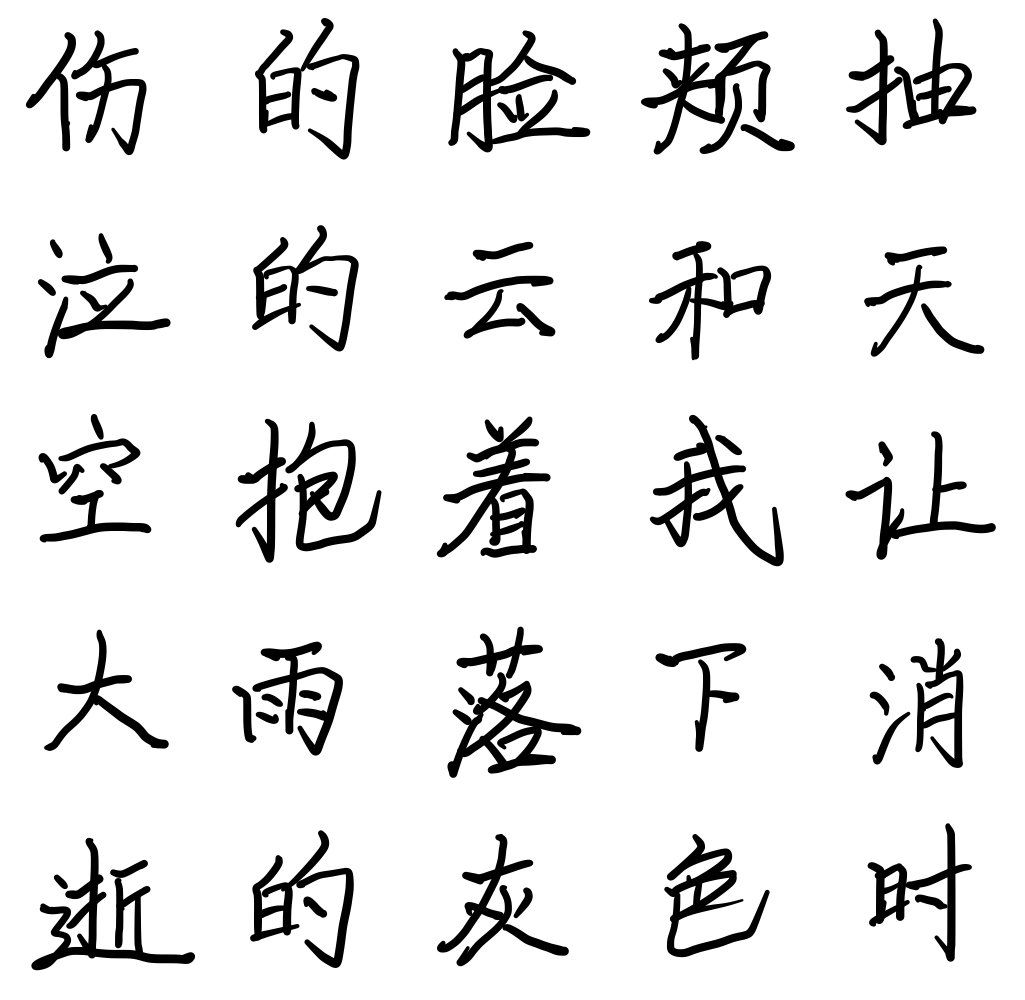 伤的脸颊抽
泣的云和天
空抱着我让
大雨落下消
逝的灰色时